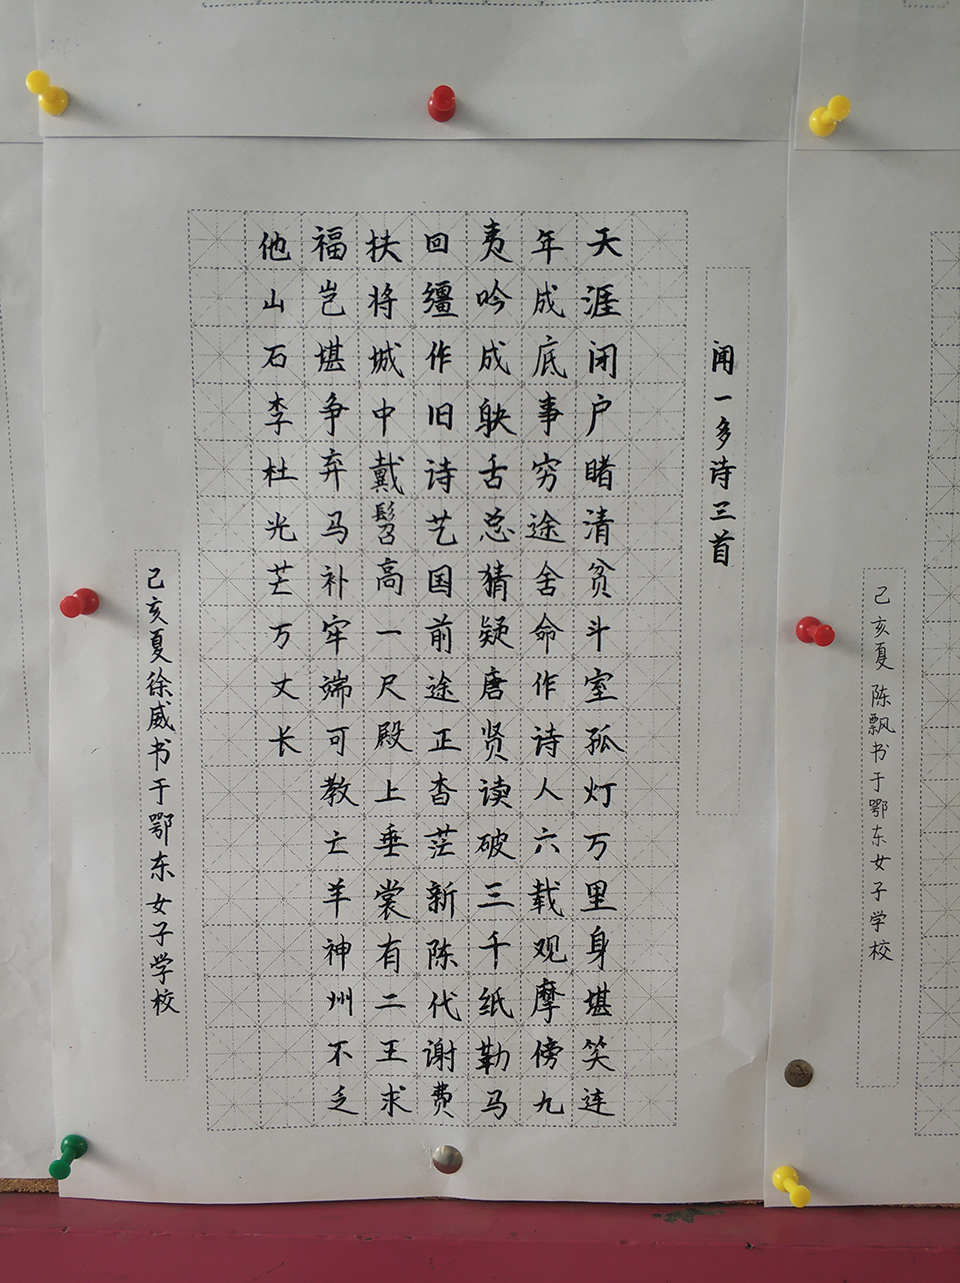 闻一多诗三首
天涯闭户睹清贫斗室孤灯万里身堪笑连
年成底事穷途舍命作诗人六载观摩傍九
夷吟成舌总猜疑唐贤读破三千纸勒马
回缰作旧诗艺国前途正杳茫新陈代谢费
扶将城中戴髫高一尺殿上垂裳有二王求
福岂堪争弃马补牢端可教亡羊神州不乏
他山石李杜光芒万丈长
己亥夏徐威书于鄂东女子学校
己亥夏陈飘书于鄂东女子学校